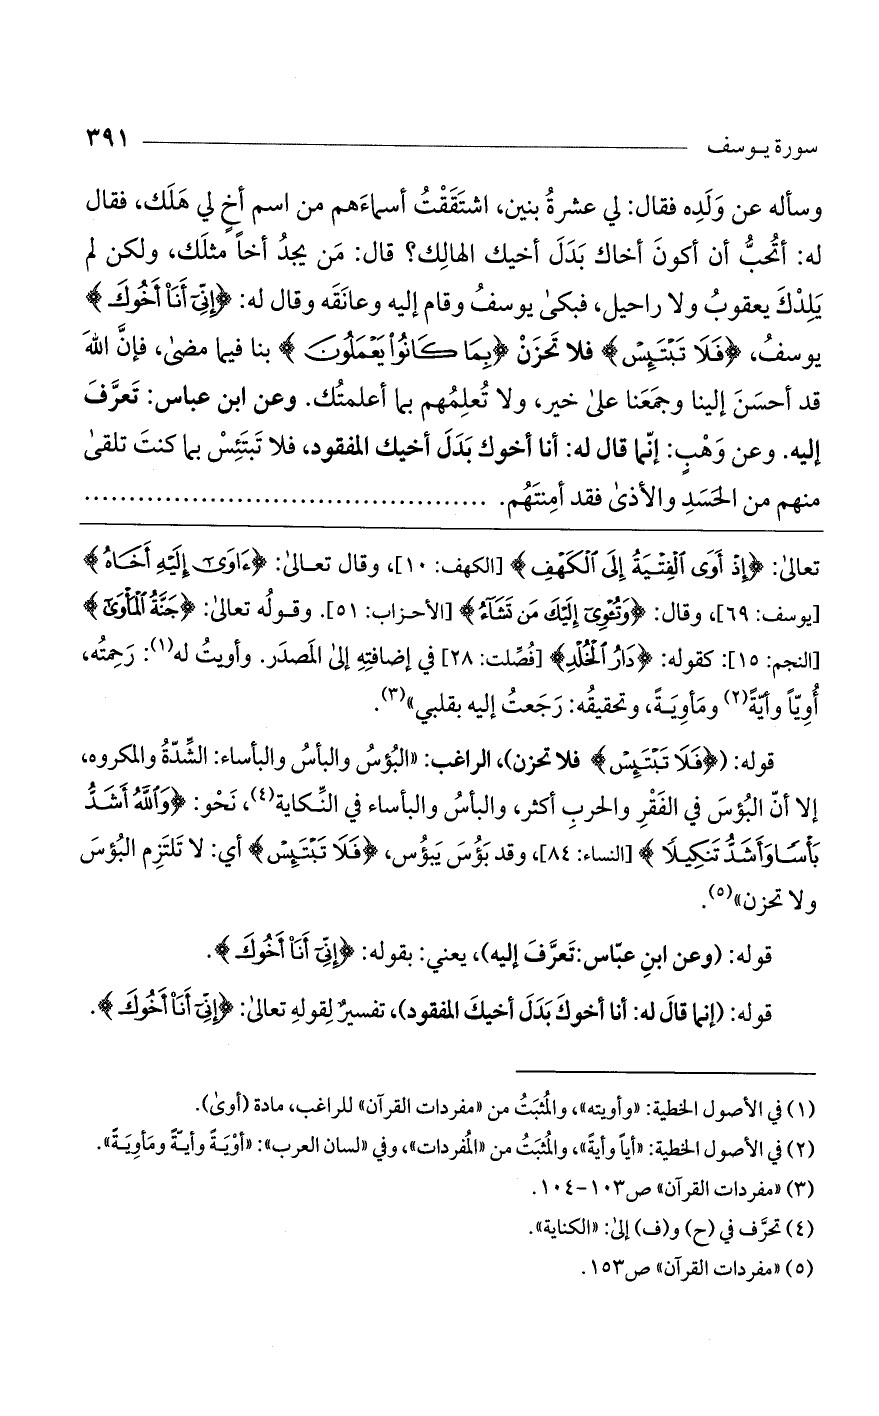 سورة يوسف ٣٩١
وسأله عن وَلَدِه فقال: لي عشرةُ بنين، اشتَقَقْتُ أسماءَهم من اسم أخٍ لي هَلَك، فقال
له: أتُحبُّ أن أكونَ أخاك بَدَلَ أخيك الهالِك؟ قال: مَن يجدُ أخاً مثلَك، ولكن لم
يَلِدْكَ يعقوبُ ولا راحيل، فبكىٰ يوسفُ وقام إليه وعانَقَه وقال له: ﴿إِنِّيٓ أَنَا۠ أَخُوكَ﴾
يوسفُ، ﴿فَلَا تَبْتَئِسْ﴾ فلا تحزَنْ ﴿بِمَا كَانُوا۟ يَعْمَلُونَ﴾ بنا فيما مضىٰ، فإنَّ اللهَ
قد أحسَنَ إلينا وجمَعَنا علىٰ خير، ولا تُعلِمْهم بما أعلمتُك. وعن ابن عباس: تَعرَّفَ
إليه. وعن وَهْبٍ: إنّما قال له: أنا أخوك بَدَلَ أخيك المفقود، فلا تَبتَئِسْ بما كنتَ تلقىٰ
منهم من الحَسَدِ والأذىٰ فقد أمِنتَهُم. ..........................................
تعالىٰ: ﴿إِذْ أَوَى ٱلْفِتْيَةُ إِلَى ٱلْكَهْفِ﴾ [الكهف: ١٠]، وقال تعالىٰ: ﴿ءَاوَىٰٓ إِلَيْهِ أَخَاهُ﴾
[يوسف: ٦٩]، وقال: ﴿وَتُـْٔوِىٓ إِلَيْكَ مَن تَشَآءُ﴾ [الأحزاب: ٥١]. وقولُه تعالىٰ: ﴿جَنَّةُ ٱلْمَأْوَىٰٓ﴾
[النجم: ١٥]: كقوله: ﴿دَارُ ٱلْخُلْدِ﴾ [فُصِّلت: ٢٨] في إضافتِه إلىٰ المَصدَر. وأويتُ له(١): رَحِمتُه،
أُوِيّاً وأيَّةً(٢) ومَأوِيَةً، وتحقيقُه: رَجَعتُ إليه بقلبي»(٣).
قوله: (﴿فَلَا تَبْتَئِسْ﴾ فلا تحزن)، الراغب: «البُؤسُ والبأسُ والبأساء: الشِّدّةُ والمكروه،
إلا أنّ البُؤسَ في الفَقْرِ والحربِ أكثر، والبأسُ والبأساء في النِّكاية(٤)، نَحْو: ﴿وَٱللَّهُ أَشَدُّ
بَأْسًا وَأَشَدُّ تَنكِيلًا﴾ [النساء: ٨٤]، وقد بَؤُسَ يَبؤُس، ﴿فَلَا تَبْتَئِسْ﴾ أي: لا تَلتَزِم البُؤسَ
ولا تحزن»(٥).
قوله: (وعن ابنِ عبّاس:تَعرَّفَ إليه)، يعني: بقوله: ﴿إِنِّيٓ أَنَا۠ أَخُوكَ﴾.
قوله: (إنما قالَ له: أنا أخوكَ بَدَلَ أخيكَ المفقود)، تفسيرٌ لِقولهِ تعالىٰ: ﴿إِنِّيٓ أَنَا۠ أَخُوكَ﴾.
(١) في الأصول الخطية: «وأويته»، والمُثبَتُ من «مفردات القرآن» للراغب، مادة (أوىٰ).
(٢) في الأصول الخطية: «أياً وأيةً»، والمُثبَتُ من «المُفردات»، وفي «لسان العرب»: «أوْيَةً وأيّةً ومَأوِيَةً».
(٣) «مفردات القرآن» ص١٠٣-١٠٤.
(٤) تحرَّف في (ح) و(ف) إلىٰ: «الكناية».
(٥) «مفردات القرآن» ص١٥٣.